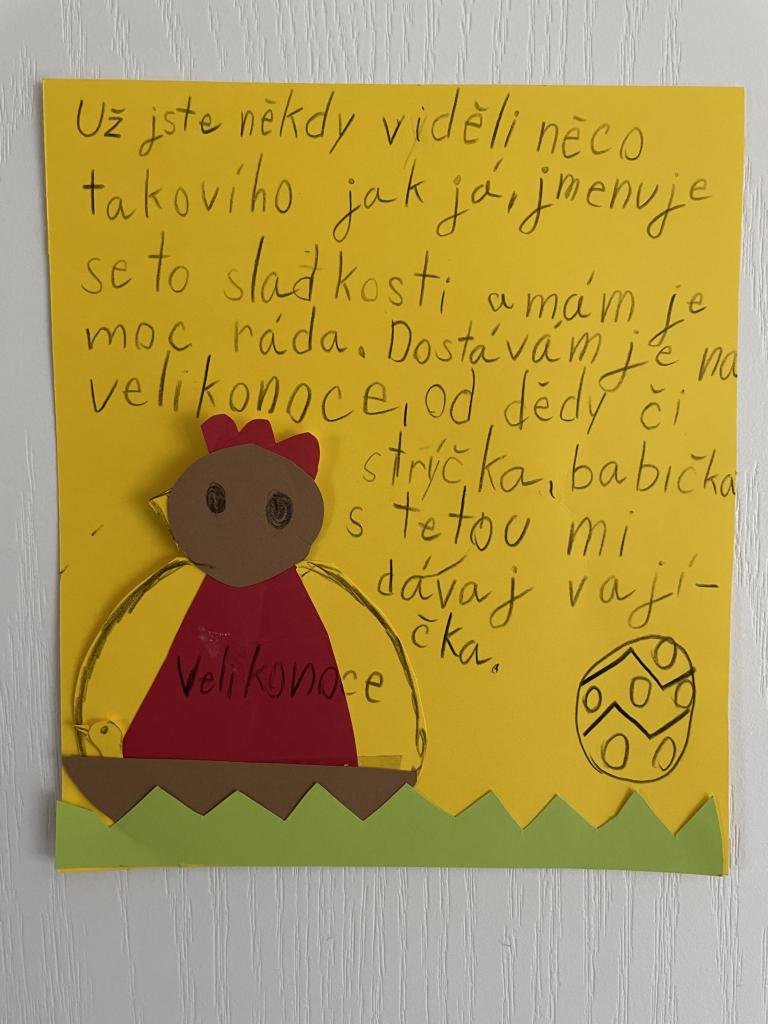 Už jste někdy viděli něco
takovího jak já, jmenuje
se to slaďkosti a mám je
moc ráda. Dostávám je na
velikonoce, od dědy či
strýčka, babička
s tetou mi
dávaj vají-
čka.
Velikonoce